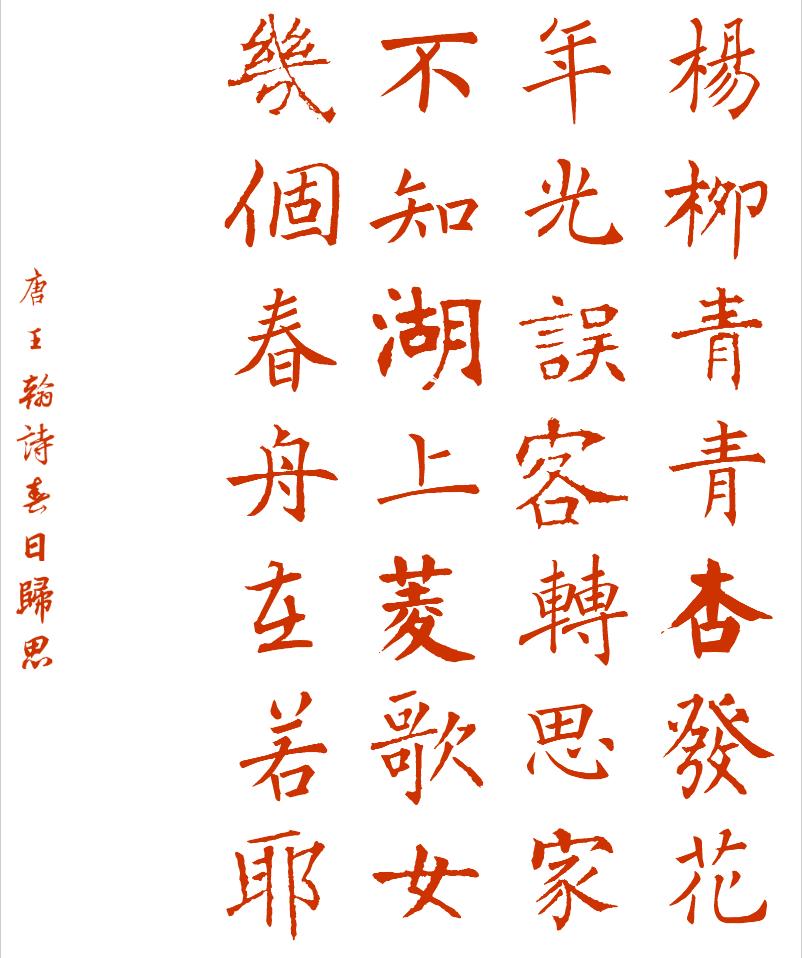 楊柳青青杏發花
年光誤客轉思家
不知湖上菱歌女
幾個春舟在若耶
唐王翰詩春日歸思